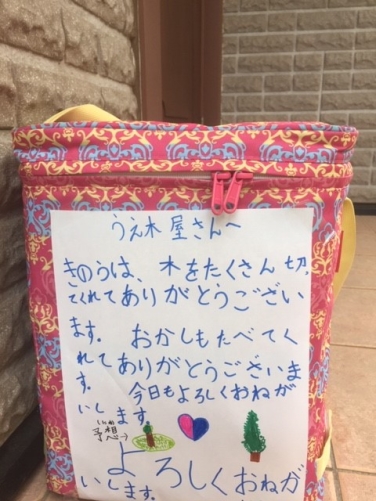 うえ木屋さんへ
きのうは、木をたくさん切っ
てくれてありがとうござい
ます。 おかしもたべてく
れてありがとうございま
す。 今日もよろしくおねが
いします。
よろしくおねが
いします。